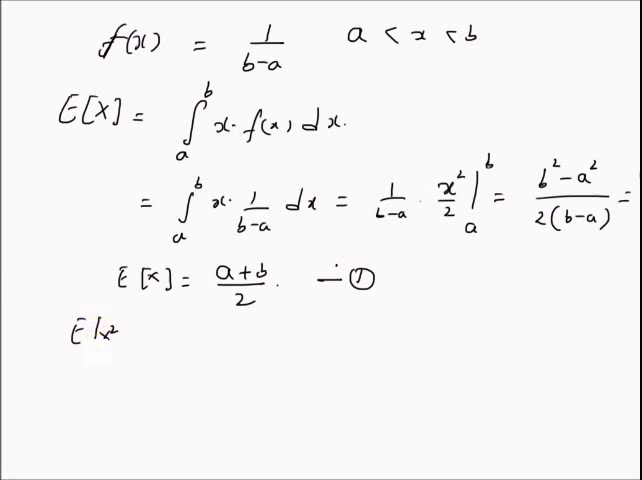 f(x) = 1/(b-a) a < x < b
E[X] = ∫_a^b x · f(x) dx.
= ∫_a^b x · 1/(b-a) dx = 1/(b-a) · x²/2 |_a^b = (b² - a²)/(2(b-a)) =
E[x] = (a+b)/2 . — ①
E[x²